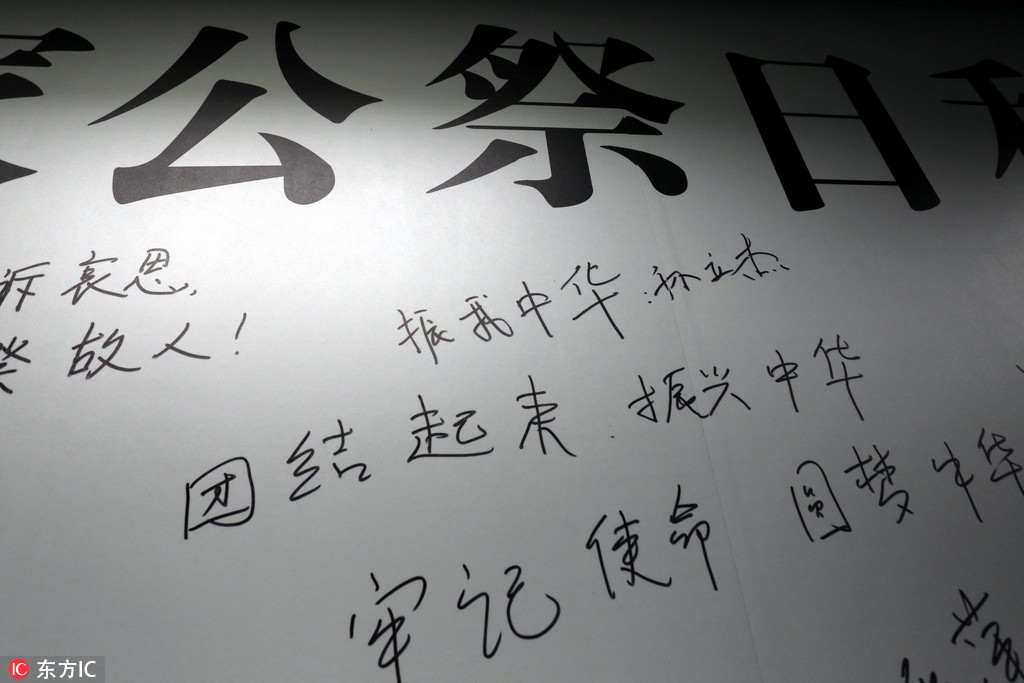 家公祭日
哀思,
故人!
振我中华 孙立杰
团结起来 振兴中华
圆梦中华
牢记使命
东方IC